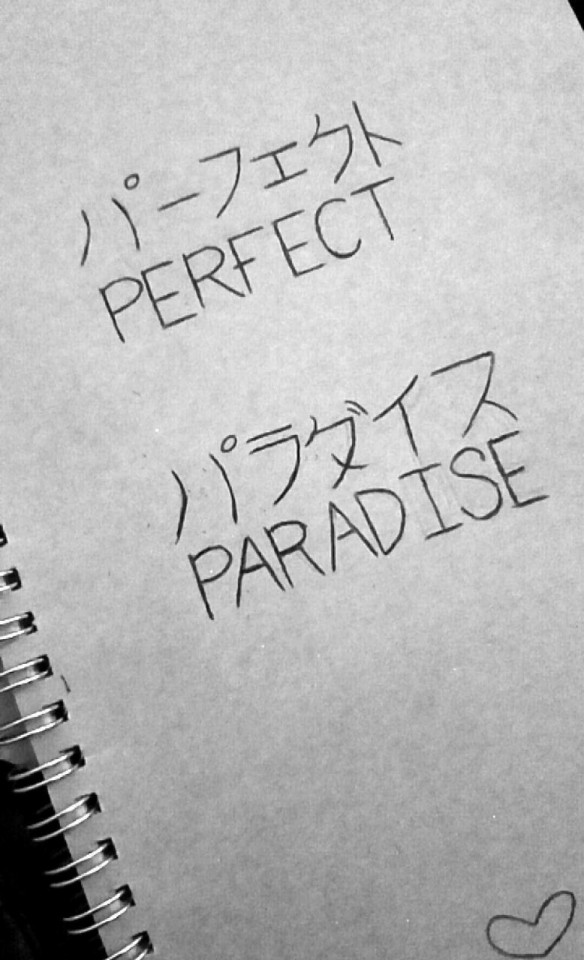 パーフェクト
PERFECT
パラダイス
PARADISE